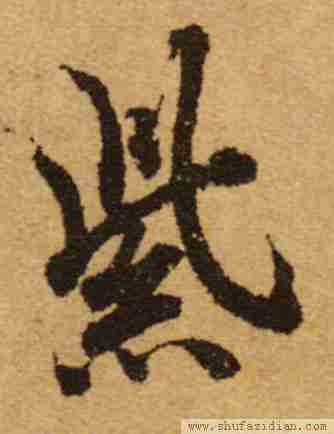 紫
www.shufazidian.com